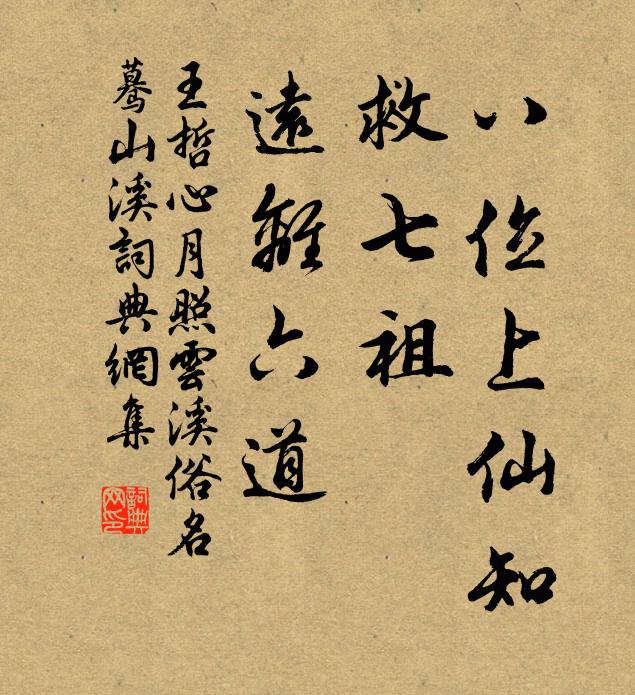 八位上仙知
救七祖
遠離六道
王哲心月照雲溪俗名
驀山溪詞典網集
詞典网印